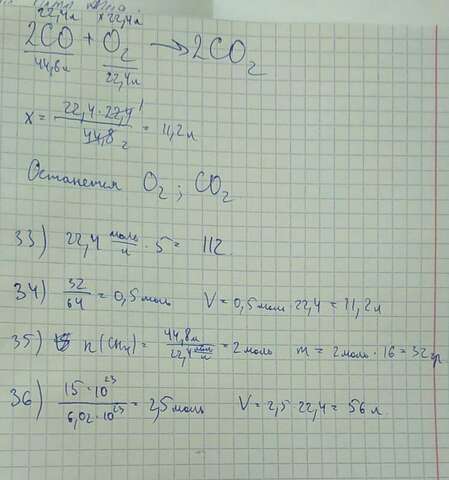 22,4л x 22,4л
2CO + O₂ → 2CO₂
44,8л 22,4л
x = 22,4·22,4 / 44,8 = 11,2л
Останется O₂ ; CO₂
33) 22,4 моль/л · 5 = 112
34) 32/64 = 0,5 моль V = 0,5 моль · 22,4 = 11,2л
35) n(CH₄) = 44,8л / 22,4 моль/л = 2 моль m = 2 моль · 16 = 32 гр
36) 15·10²³ / 6,02·10²³ = 2,5 моль V = 2,5 · 22,4 = 56 л.